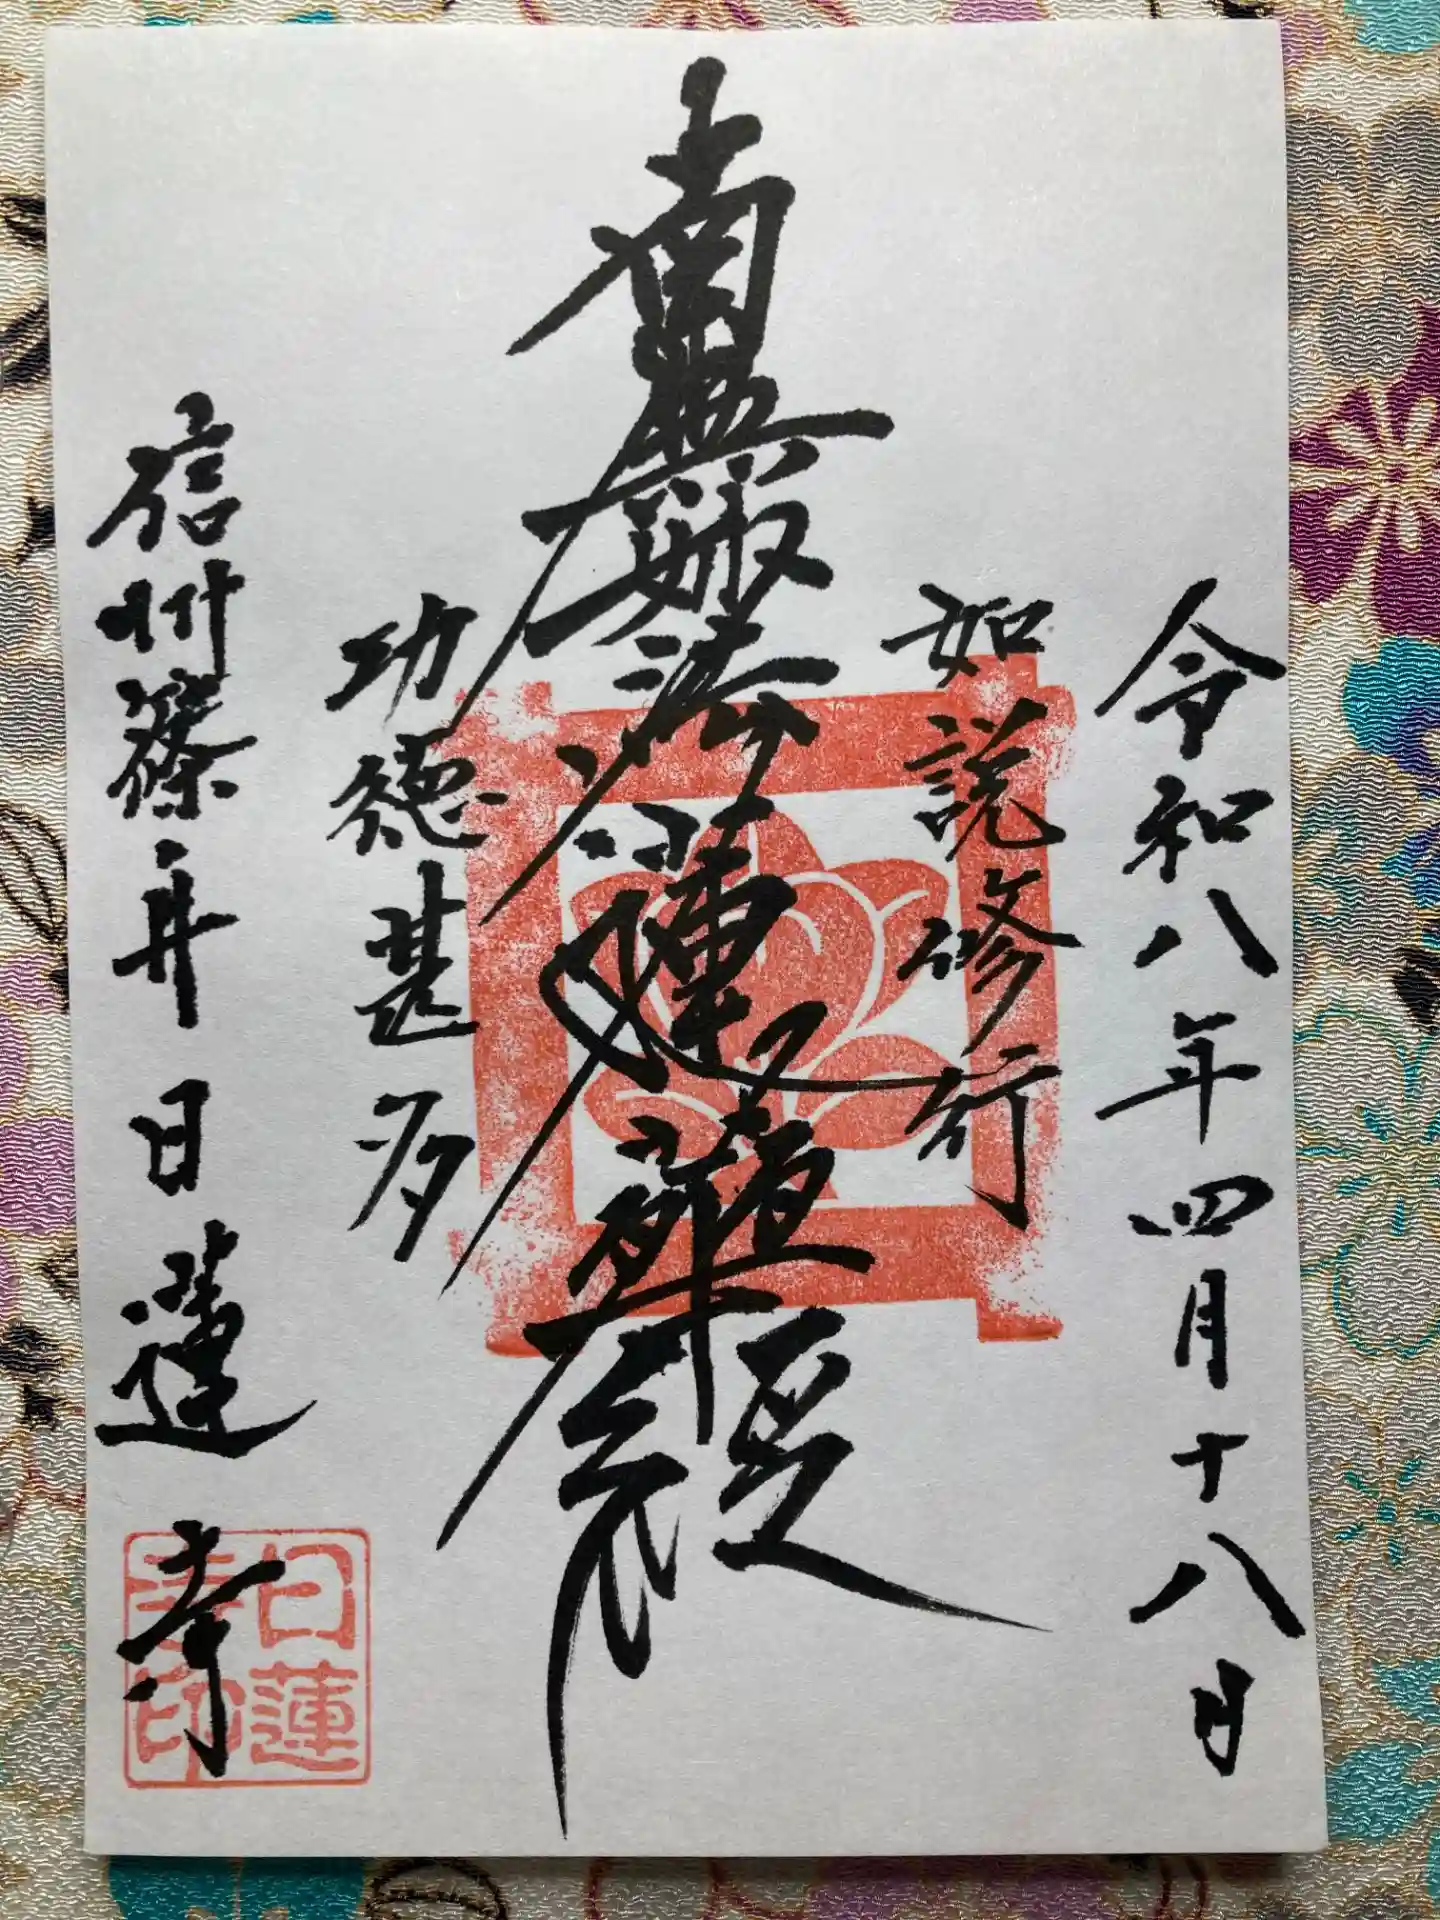 令和八年四月十八日
如説修行
南無妙法蓮華経
功徳甚多
信州篠ノ井 日蓮寺
日蓮寺印